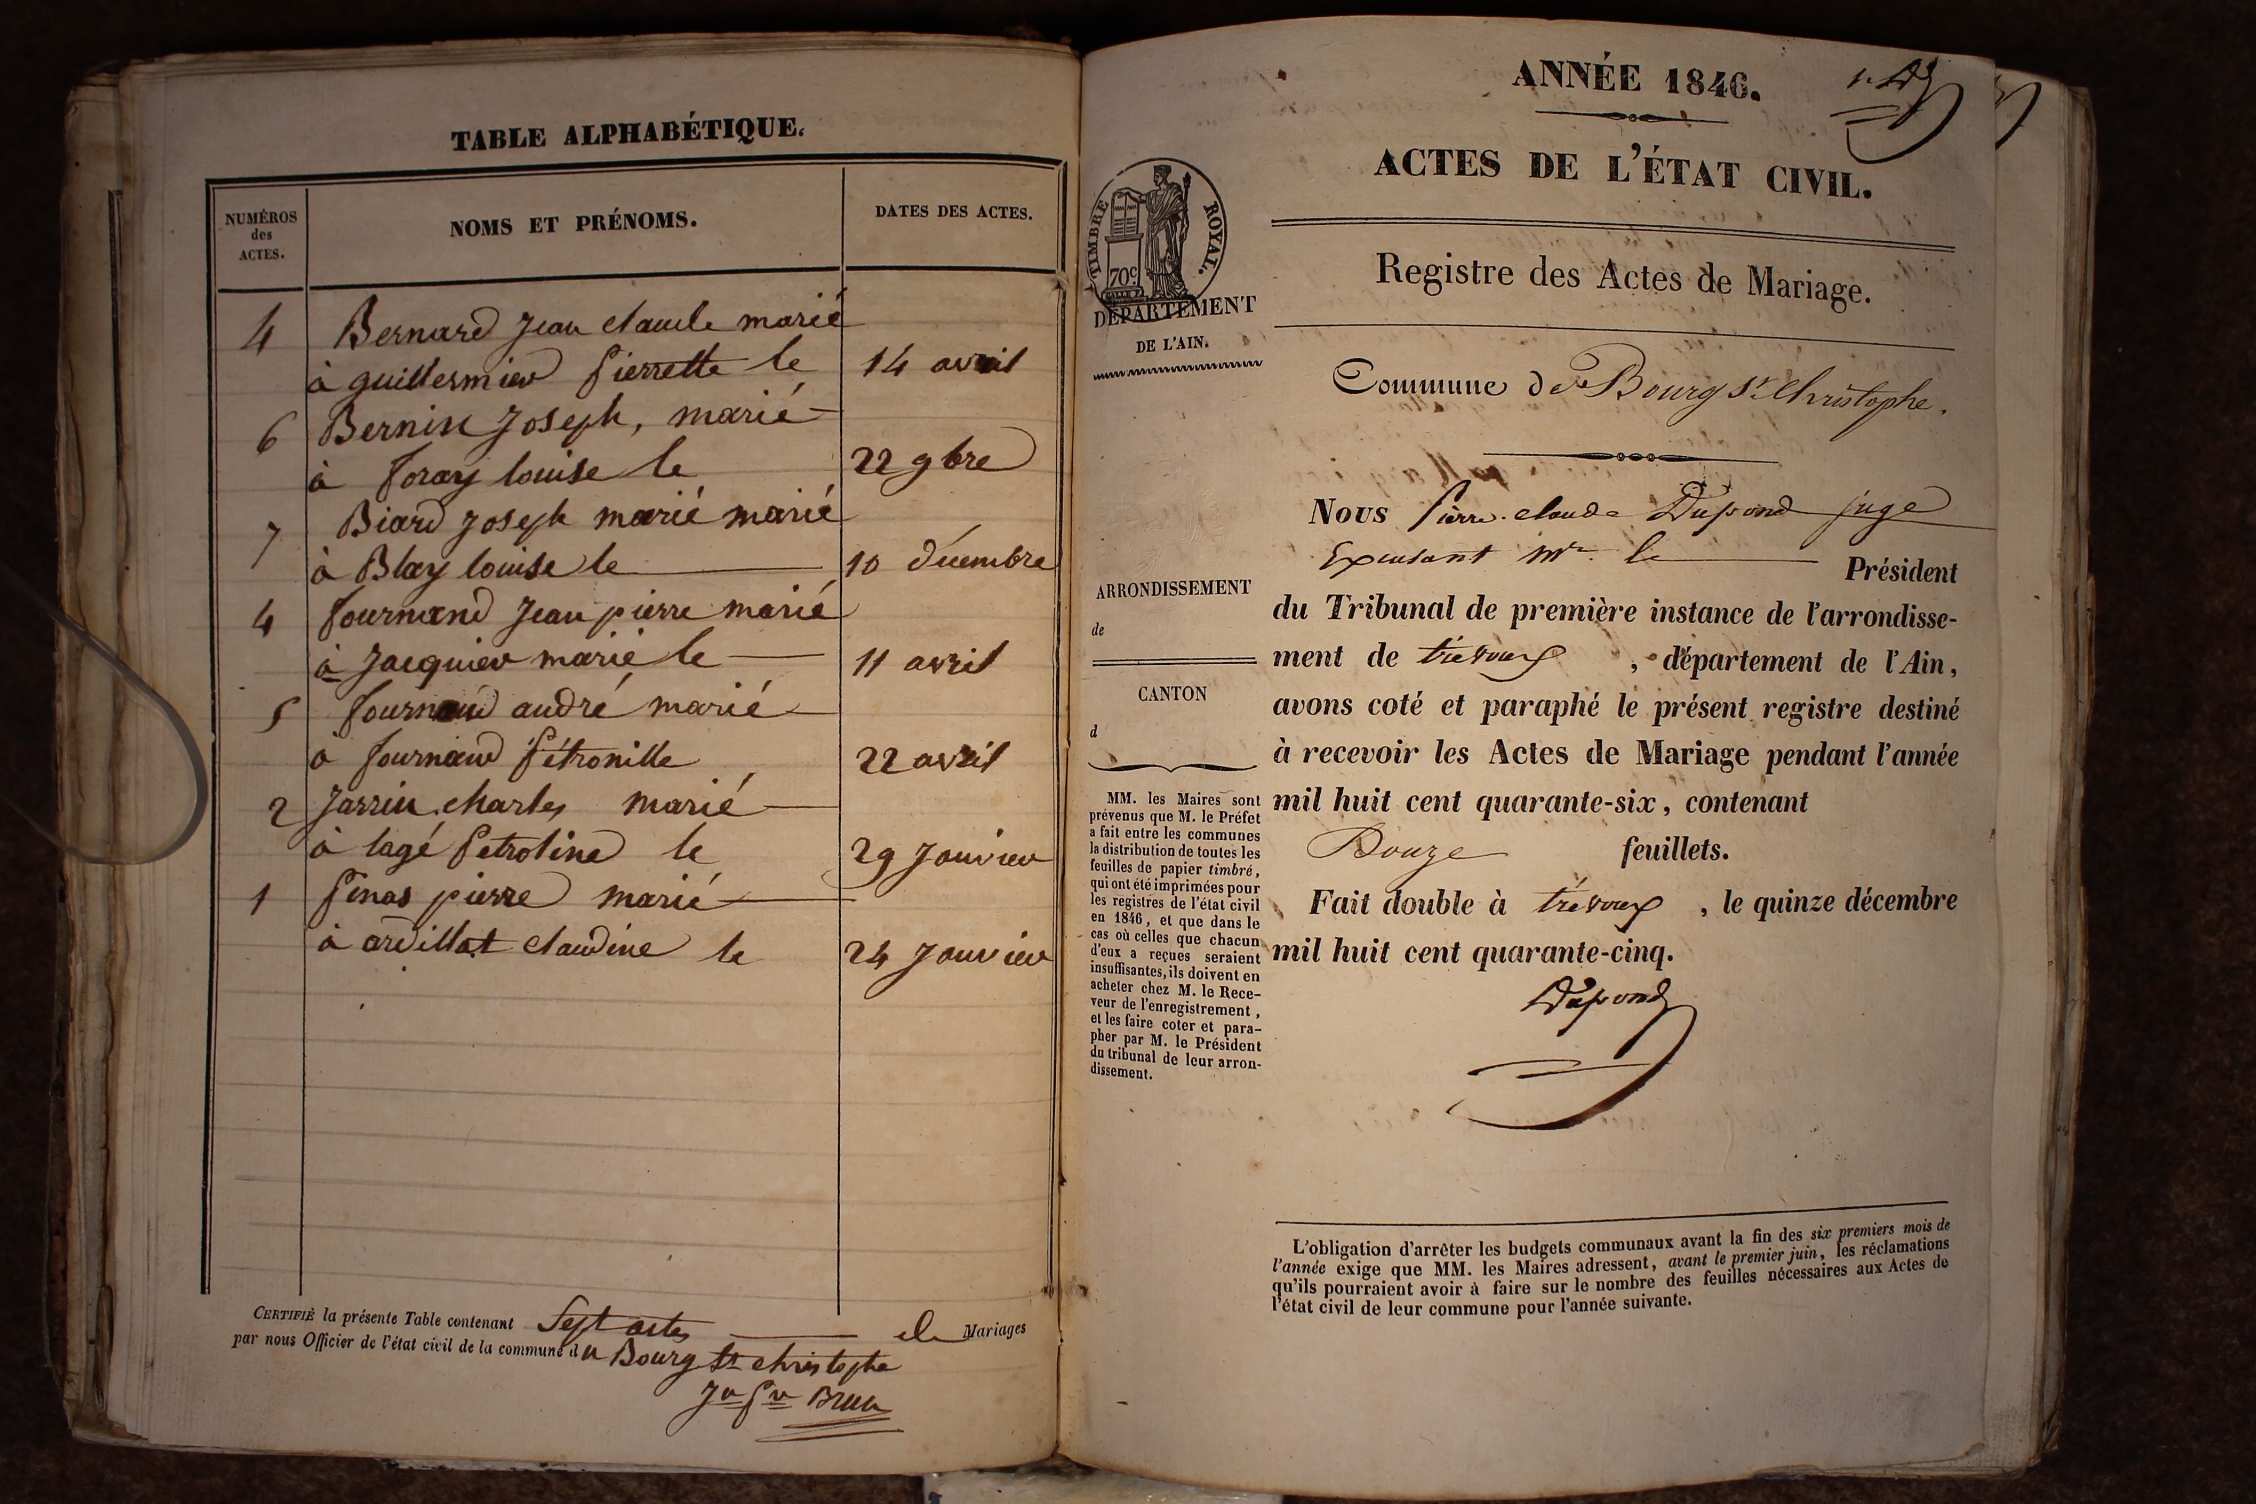 TABLE ALPHABÉTIQUE.
NUMÉROS
des
ACTES.
NOMS ET PRÉNOMS.
DATES DES ACTES.
4 Bernard Jean claude marié
à guillermier Pierrette le 14 avril
6 Bernin Joseph, marié
à foray louise le 22 9bre
7 Biard Joseph marié marié
à Blay louise le 10 décembre
4 fournand Jean pierre marié
à Jacquier marie le 11 avril
5 fournand andré marié
à fournand Pétronille 22 avril
2 Jarrin charles marié
à lagé Petroline le 29 Janvier
1 Pinas pierre marié
à ardillat claudine le 24 Janvier
CERTIFIÉ la présente Table contenant Sept actes de Mariages
par nous Officier de l'état civil de la commune du Bourg st christophe
Brun
ANNÉE 1846.
ACTES DE L'ÉTAT CIVIL.
TIMBRE ROYAL.
70c
DÉPARTEMENT
DE L'AIN.
Registre des Actes de Mariage.
Commune de Bourg St Christophe.
Nous Pierre-claude Dupond juge
Expensant Mr. le Président
ARRONDISSEMENT
de
CANTON
d
du Tribunal de première instance de l'arrondisse-
ment de trévoux, département de l'Ain,
avons coté et paraphé le présent registre destiné
à recevoir les Actes de Mariage pendant l'année
mil huit cent quarante-six, contenant
Douze feuillets.
Fait double à trévoux, le quinze décembre
mil huit cent quarante-cinq.
Dupond
MM. les Maires sont
prévenus que M. le Préfet
a fait entre les communes
la distribution de toutes les
feuilles de papier timbré,
qui ont été imprimées pour
les registres de l'état civil
en 1846, et que dans le
cas où celles que chacun
d'eux a reçues seraient
insuffisantes, ils doivent en
acheter chez M. le Rece-
veur de l'enregistrement,
et les faire coter et para-
pher par M. le Président
du tribunal de leur arron-
dissement.
L'obligation d'arrêter les budgets communaux avant la fin des six premiers mois de
l'année exige que MM. les Maires adressent, avant le premier juin, les réclamations
qu'ils pourraient avoir à faire sur le nombre des feuilles nécessaires aux Actes de
l'état civil de leur commune pour l'année suivante.